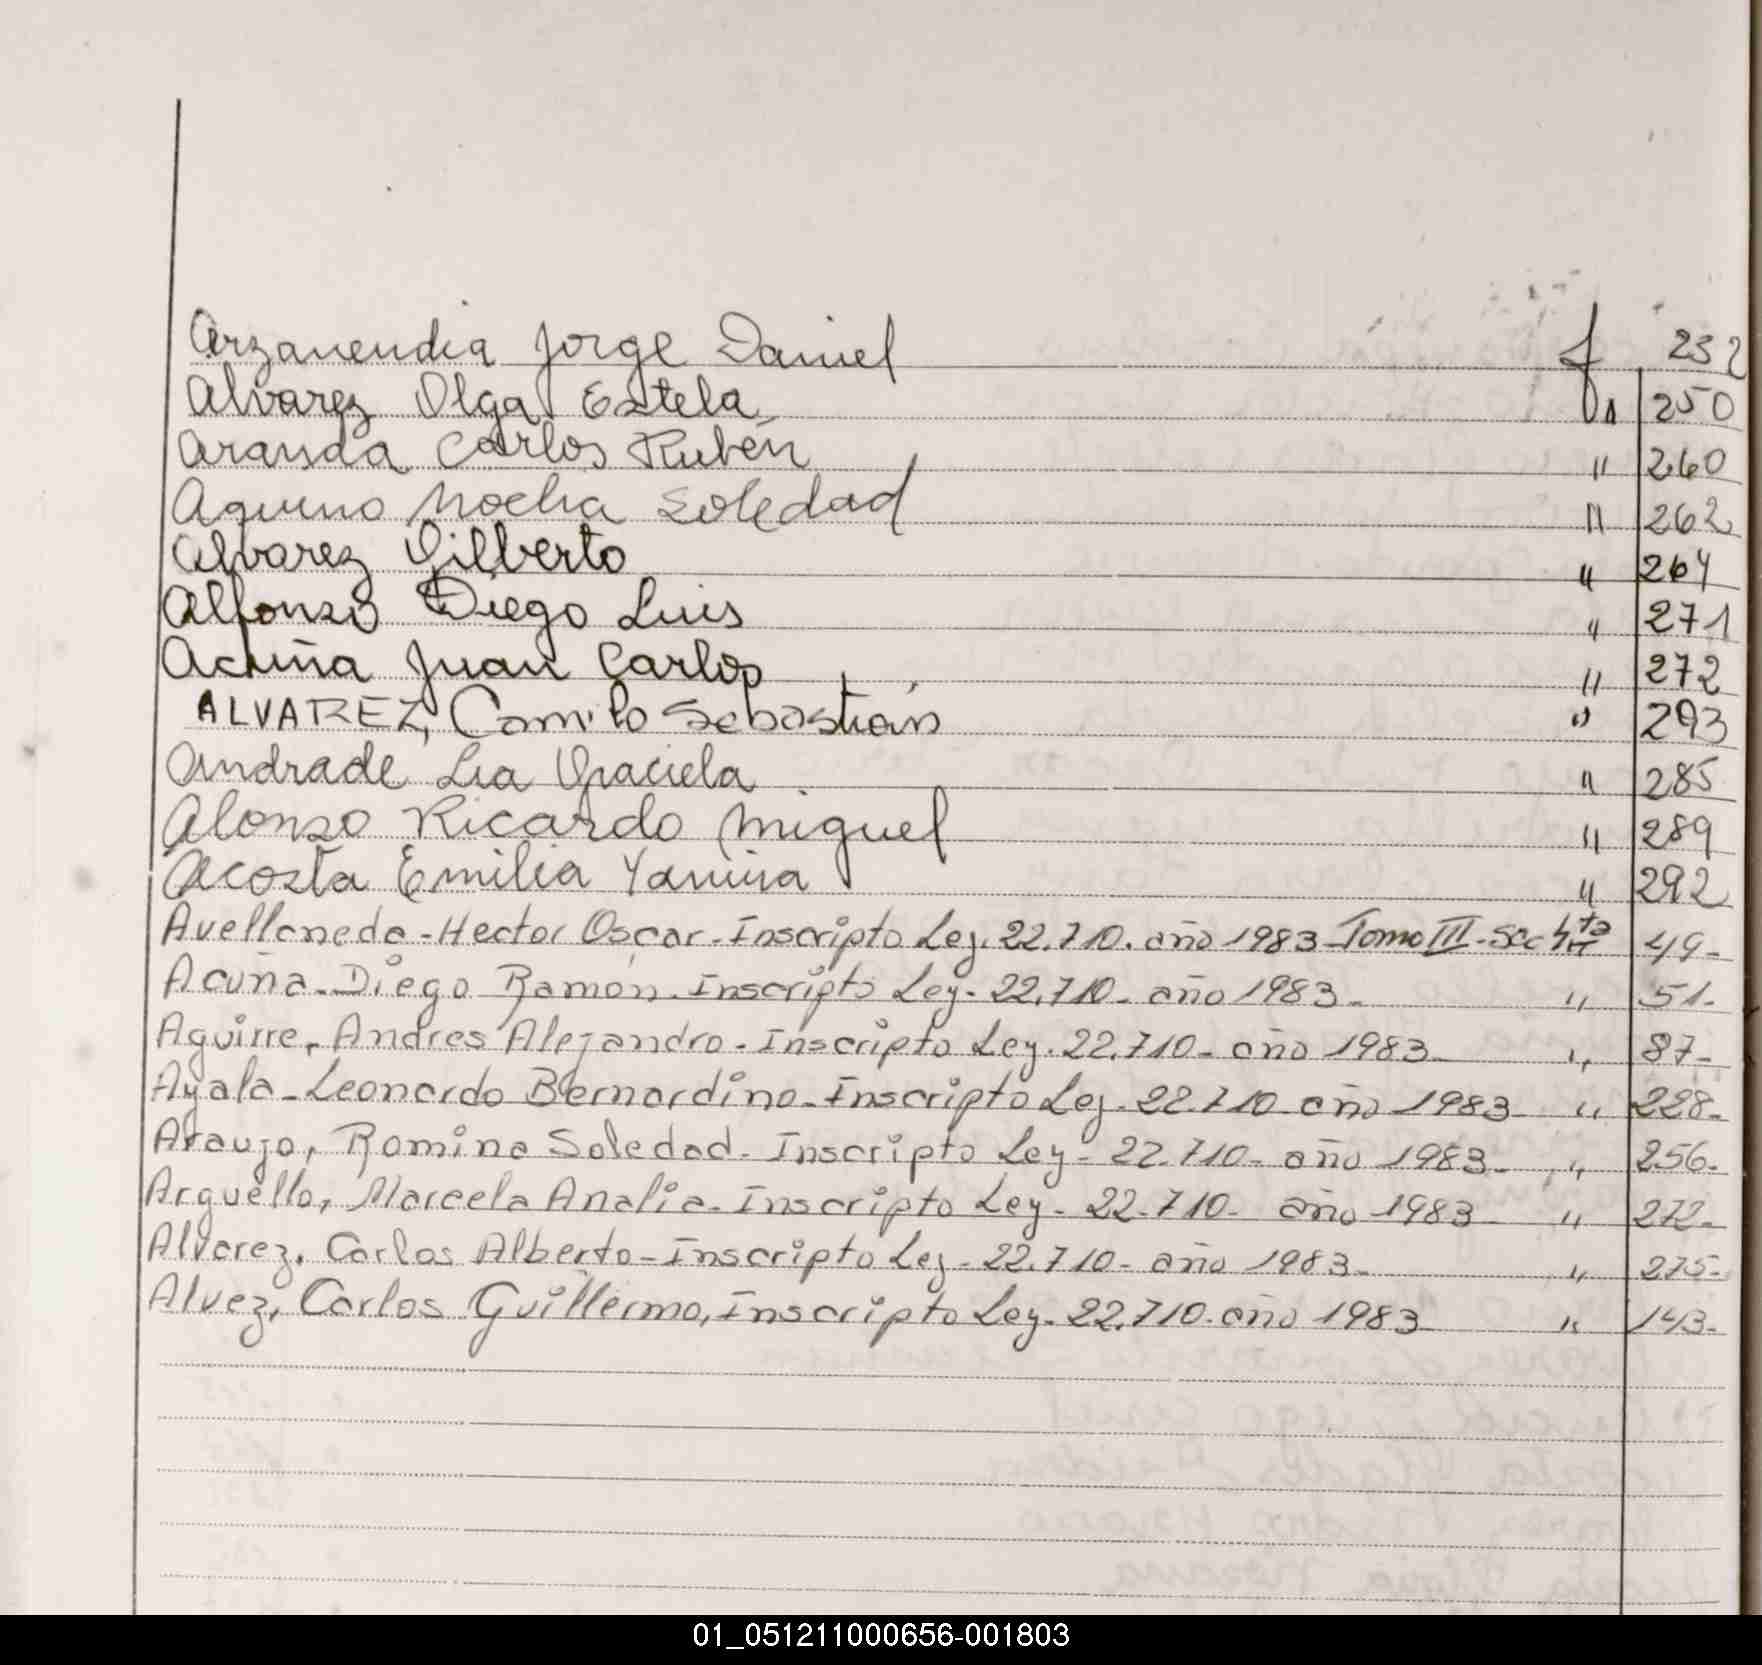 Arzamendia Jorge Daniel f 232
Alvarez Olga Estela " 250
Aranda Carlos Rubén " 260
Aquino Noelia Soledad " 262
Alvarez Gilberto " 264
Alfonso Diego Luis " 271
Acuña Juan Carlos " 272
ALVAREZ, Camilo Sebastián " 293
Andrade Lia Graciela " 285
Alonso Ricardo Miguel " 289
Acosta Emilia Yanina " 292
Avellaneda - Hector Oscar - Inscripto Ley. 22.710. año 1983 - Tomo III - Sec 4ta 49 -
Acuña - Diego Ramón. Inscripto Ley - 22.710 - año 1983 - " 51 -
Aguirre, Andres Alejandro - Inscripto Ley. 22.710 - año 1983 - " 87 -
Ayala - Leonardo Bernardino - Inscripto Ley - 22.710 - año 1983 - " 228 -
Araujo, Romina Soledad - Inscripto Ley - 22.710 - año 1983 - " 256 -
Arguello, Marcela Analia - Inscripto Ley - 22.710 - año 1983 - " 272 -
Alvarez, Carlos Alberto - Inscripto Ley - 22.710 - año 1983 - " 275 -
Alvez, Carlos Guillermo, Inscripto Ley - 22.710 - año 1983 " 143 -
01_051211000656-001803